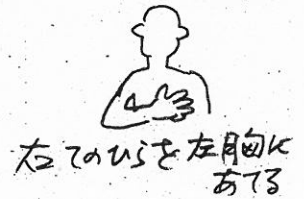 右てのひらを左胸に
あてる